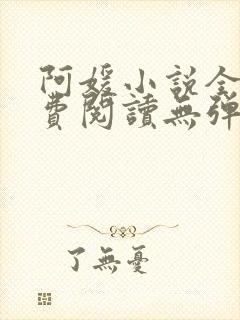 阿媛小說全
費閱讀無彈
了無憂